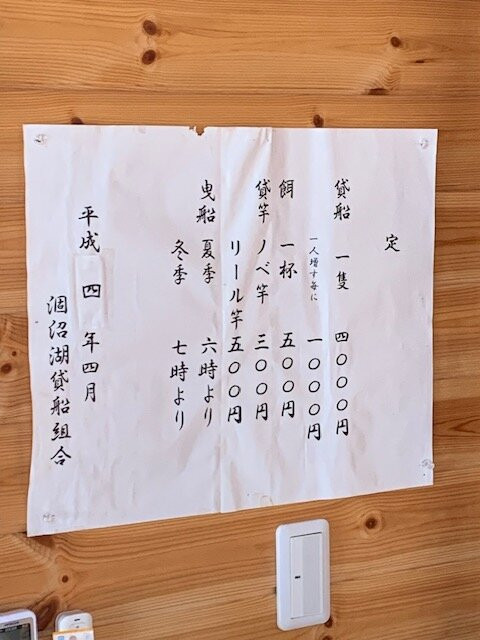 定
貸船 一隻 四〇〇〇円
一人増す毎に 一〇〇〇円
餌 一杯 五〇〇円
貸竿 ノベ竿 三〇〇円
リール竿 五〇〇円
曳船 夏季 六時より
冬季 七時より
平成 四 年四月
涸沼湖貸船組合